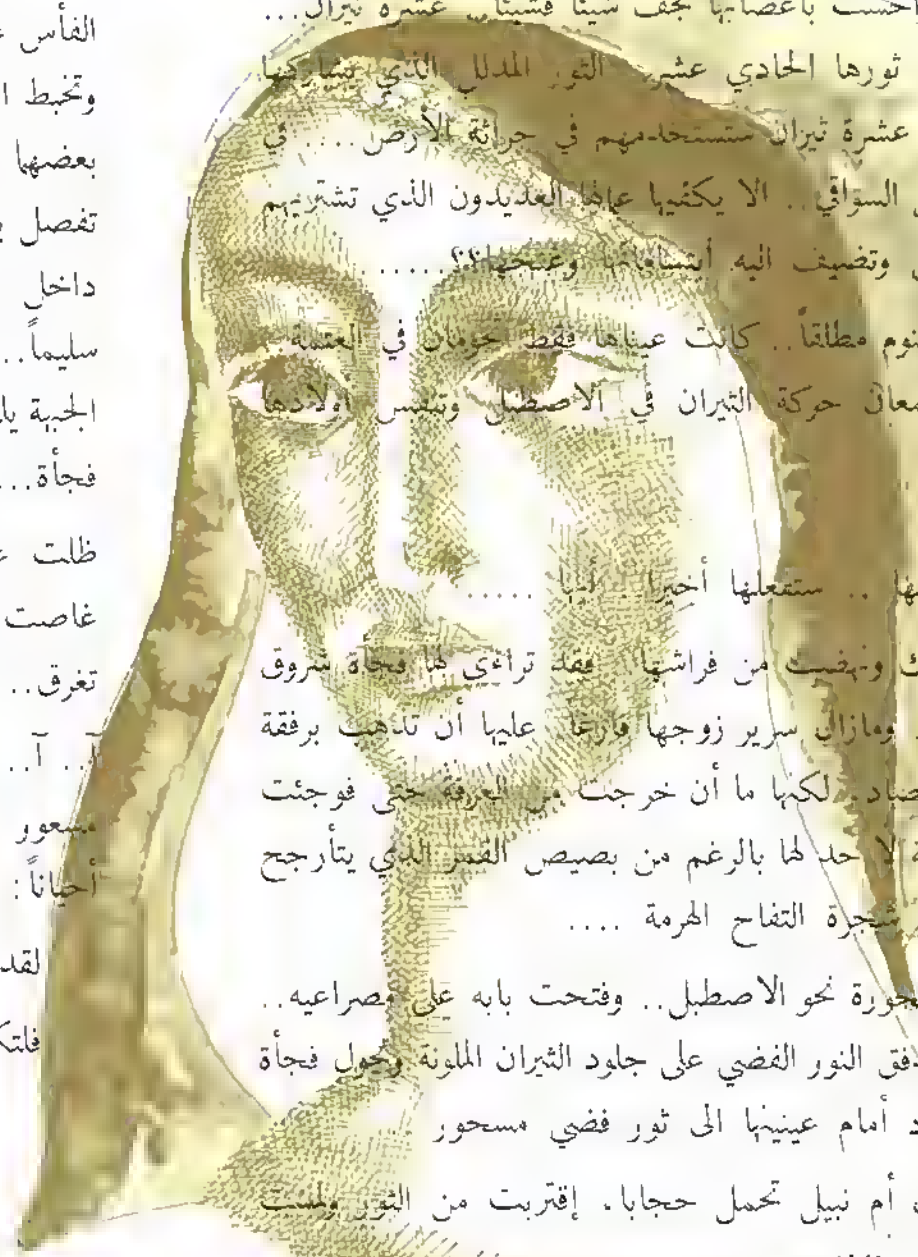 احست بأعصابها تجف شيئاً فشيئاً.. عشرة ثيران...
ثورها الحادي عشر.. الثور المدلل الذي تشاركها
عشرة ثيران ستستخدمهم في حراثة الأرض.... في
السواقي.. الا يكفيها عمالها العديدون الذي تشتريهم
وتضيف اليه أبتساماتها وغنجها؟؟.....
نوم مطلقاً.. كانت عيناها فقط تحومان في العتمة
حركة الثيران في الاصطبل وتنفس اولادها
.. ستفعلها أخيرا.. أنها .....
ونهضت من فراشها.. فقد تراءى لها فجأة شروق
ومازال سرير زوجها فارغا. عليها أن تذهب برفقة
لكنها ما أن خرجت من الغرفة حتى فوجئت
لا حد لها بالرغم من بصيص القمر الذي يتأرجح
شجرة التفاح الهرمة ....
نحو الاصطبل.. وفتحت بابه على مصراعيه..
النور الفضي على جلود الثيران الملونة وتحول فجأة
أمام عينيها الى ثور فضي مسحور .
أم نبيل تحمل حجابا. إقتربت من الثور ولمست
الفأس
وتخبط
بعضها
تفصل
داخل
سليماً..
الجبهة
فجأة...
ظلت
غاصت
تغرق..
آ.. آ..
مسعور
أحياناً:
لقد